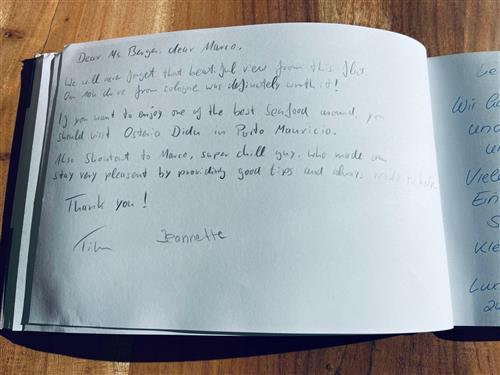 Dear Ms. Berger, dear Marco,
We will never forget that beautiful view from this flat.
Our 10h drive from cologne was definetely worth it!
If you want to enjoy one of the best seafood around, you
should visit Osteria Didù in Porto Mauricio.
Also Shoutout to Marco, super chill guy, who made our
stay very pleasent by providing good tips and always ready to help.
Thank you!
Tim Jeannette
Wir
und
Viel
Ein
S
Kle